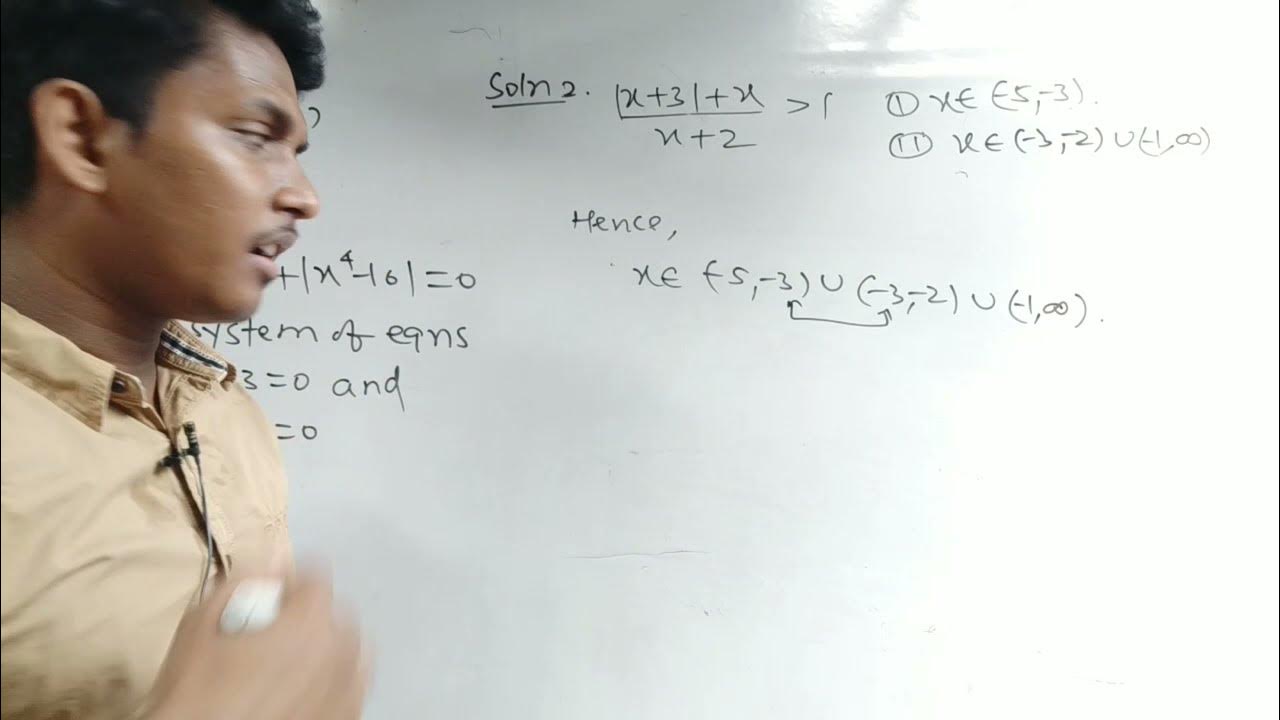 Soln 2. |x+3|+x / x+2 > 1
① x ∈ (-5,-3).
② x ∈ (-3,-2) ∪ (-1,∞)
Hence,
x ∈ (-5,-3) ∪ (-3,-2) ∪ (-1,∞).
+|x⁴-16|=0
system of eqns
3=0 and
=0